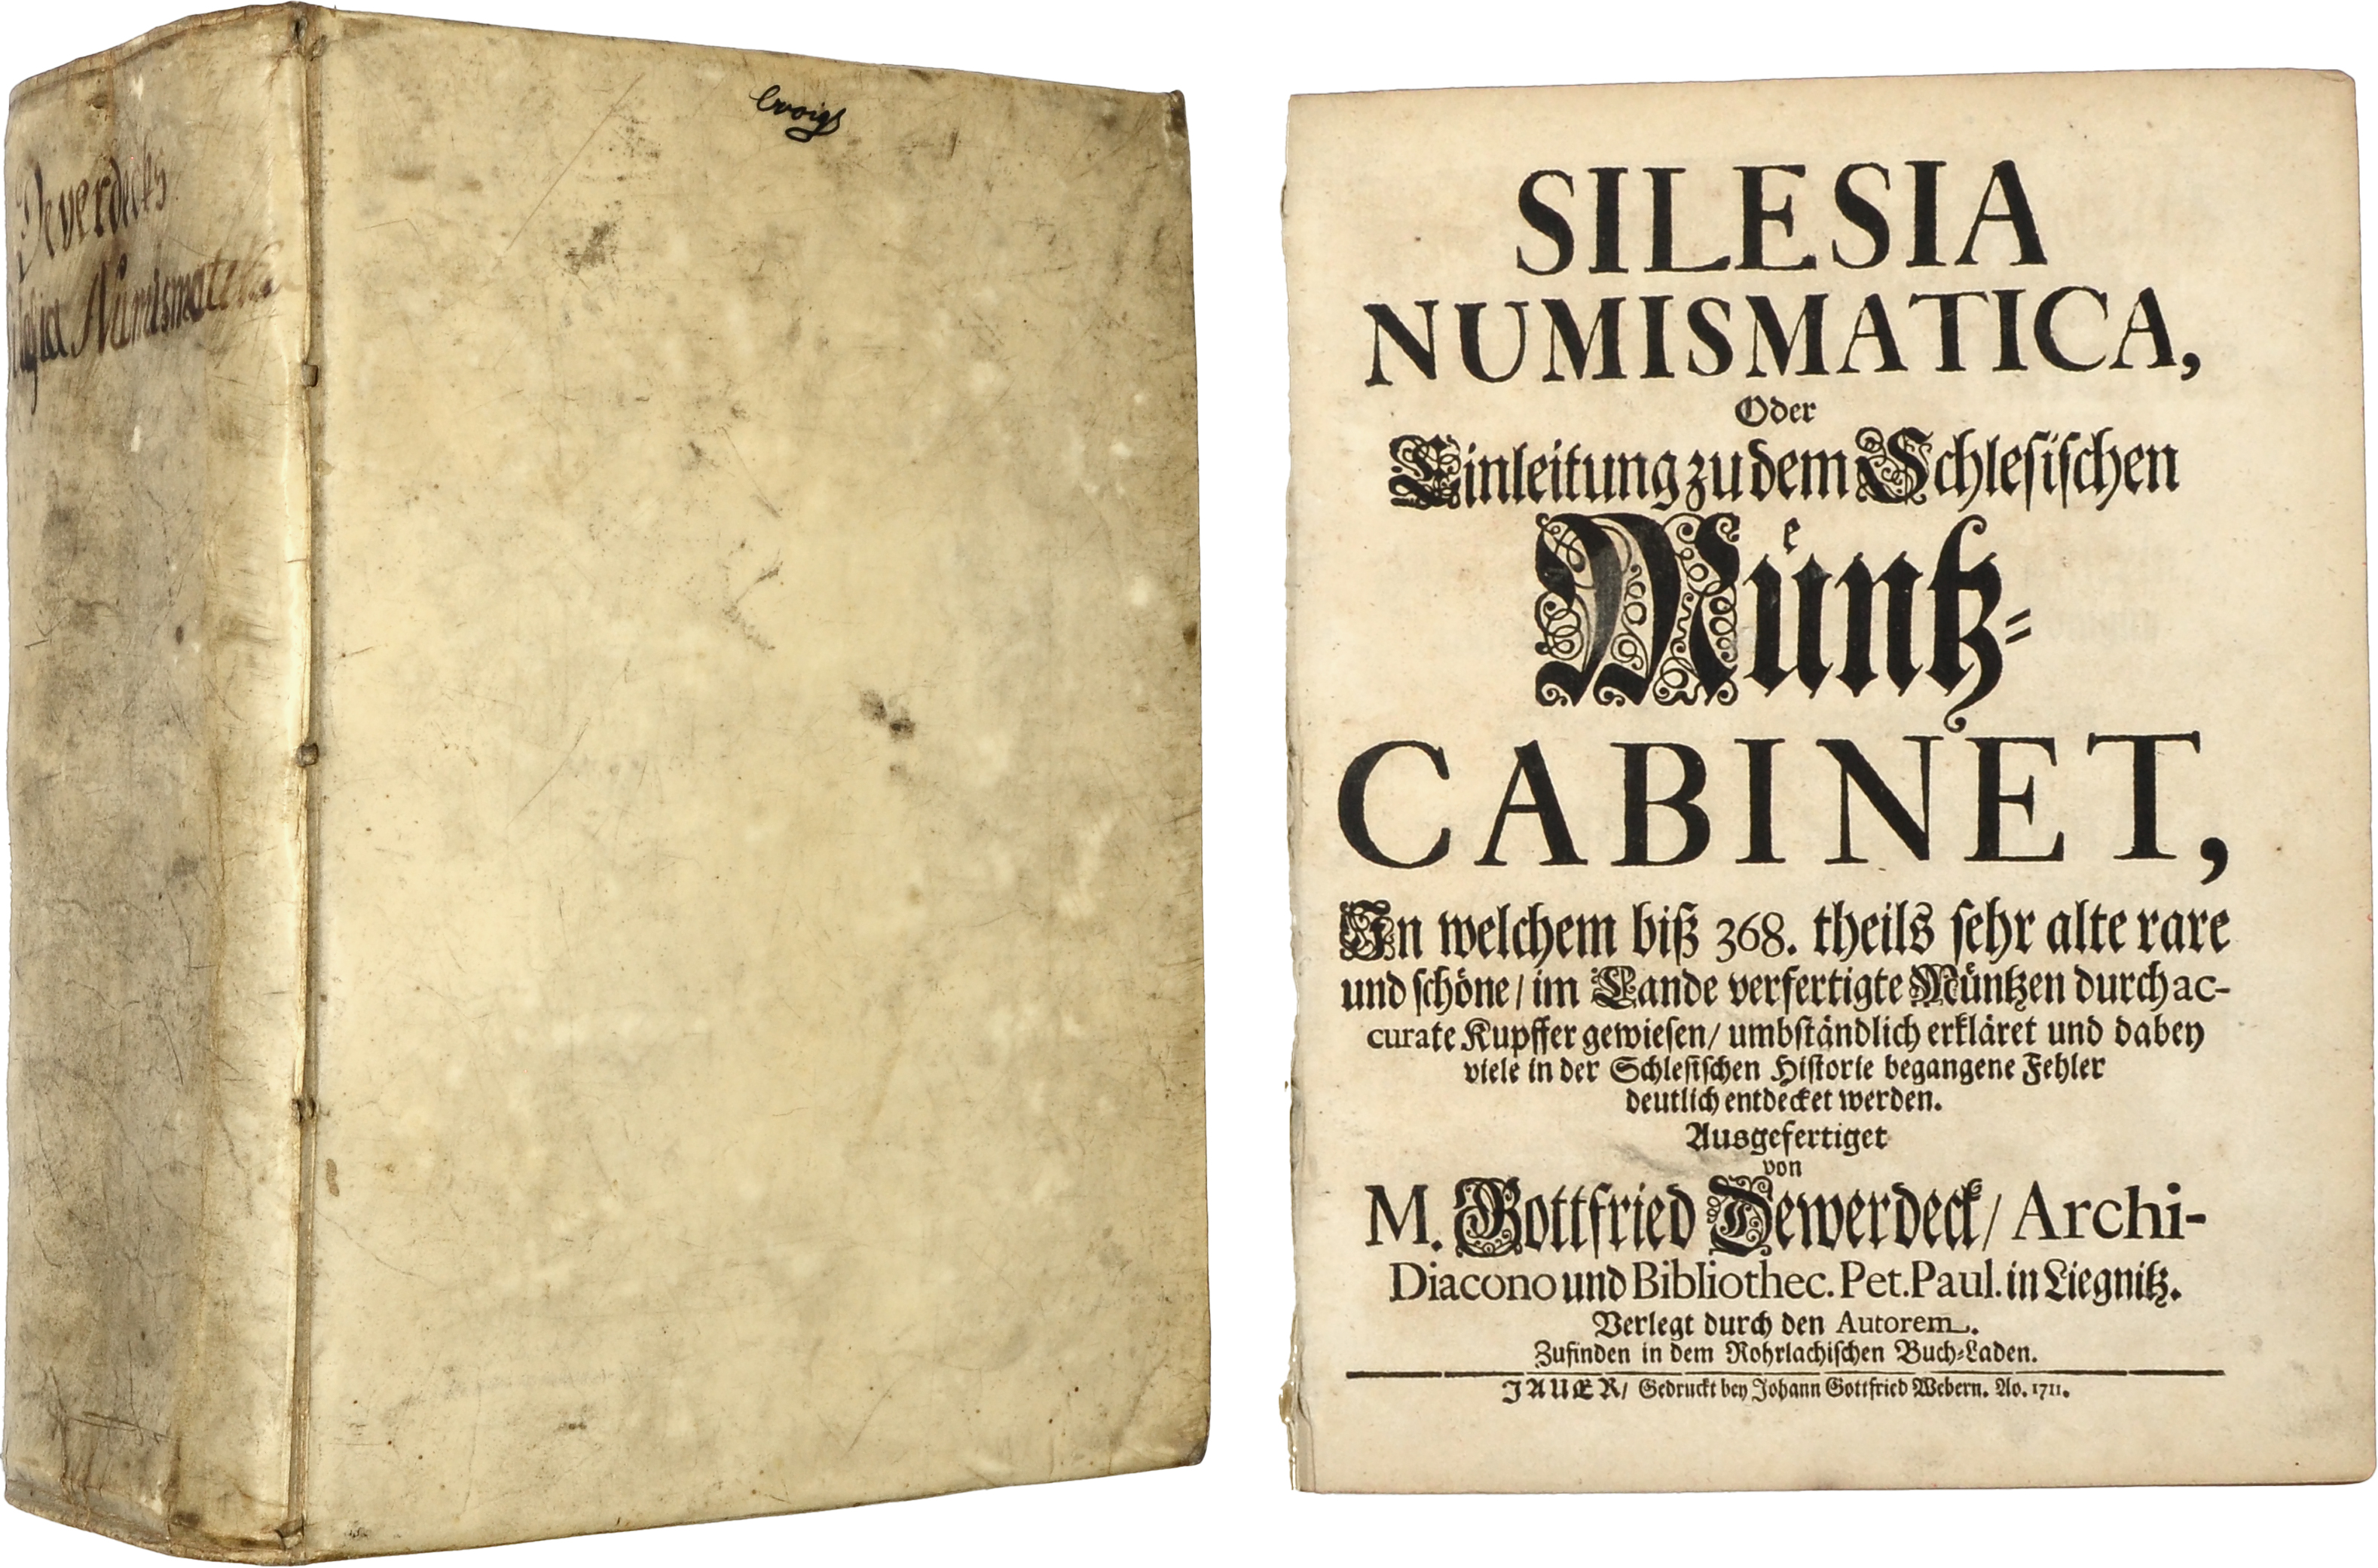 Deverdecks
Silesia Numismatica
SILESIA
NUMISMATICA,
Oder
Einleitung zu dem Schleſiſchen
Muͤntz⸗
CABINET,
In welchem biß 368. theils ſehr alte rare
und ſchöne / im Lande verfertigte Müntzen durch ac-
curate Kupffer gewieſen / umbſtändlich erkläret und dabey
viele in der Schleſiſchen Hiſtorie begangene Fehler
deutlich entdecket werden.
Ausgefertiget
von
M. Gottfried Dewerdeck / Archi-
Diacono und Bibliothec. Pet. Paul. in Liegnitz.
Verlegt durch den Autorem.
Zufinden in dem Rohrlachiſchen Buch⸗Laden.
JAUER / Gedruckt bey Johann Gottfried Webern. Ao. 1711.